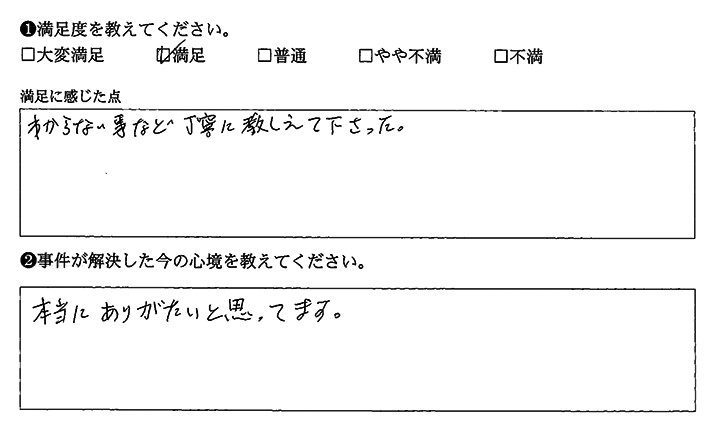 ❶満足度を教えてください。
□大変満足 ☑満足 □普通 □やや不満 □不満
満足に感じた点
わからない事など丁寧に教しえて下さった。
❷事件が解決した今の心境を教えてください。
本当にありがたいと思ってます。